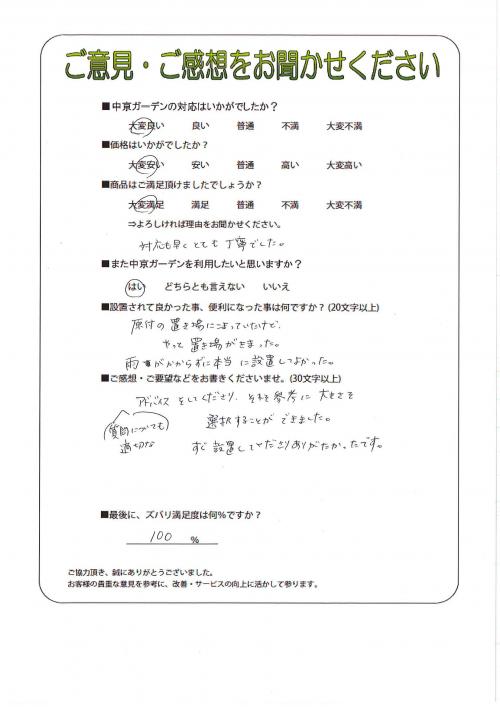 ご意見・ご感想をお聞かせください
■中京ガーデンの対応はいかがでしたか?
大変良い 良い 普通 不満 大変不満
■価格はいかがでしたか?
大変安い 安い 普通 高い 大変高い
■商品はご満足頂けましたでしょうか?
大変満足 満足 普通 不満 大変不満
⇒よろしければ理由をお聞かせください。
対応も早くとても丁寧でした。
■また中京ガーデンを利用したいと思いますか?
はい どちらとも言えない いいえ
■設置されて良かった事、便利になった事は何ですか?(20文字以上)
原付の置き場にこまっていたけど、
やっと置き場がきまった。
雨がかからずに本当に設置してよかった。
■ご感想・ご要望などをお書きくださいませ。(30文字以上)
アドバイスをしてくださり、それを参考に大きさを
質問についても
適切な
選択することができました。
すぐ設置してくださりありがたかったです。
■最後に、ズバリ満足度は何%ですか?
100 %
ご協力頂き、誠にありがとうございました。
お客様の貴重な意見を参考に、改善・サービスの向上に活かして参ります。